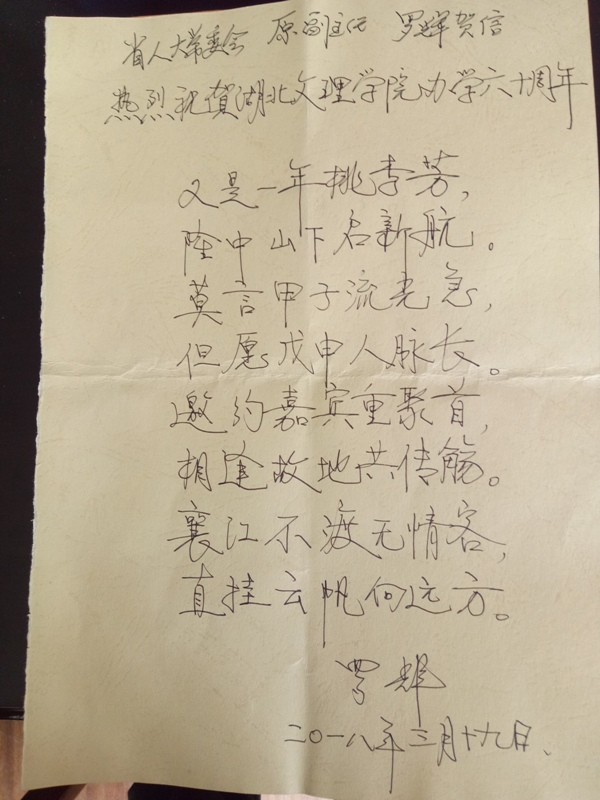 省人大常委会 原副主任 罗辉贺信
热烈祝贺湖北文理学院办学六十周年
又是一年桃李芳，
隆中山下启新航。
莫言甲子流光急，
但愿戊申人脉长。
邀约嘉宾重聚首，
相逢故地共传觞。
襄江不渡无情客，
直挂云帆向远方。
罗辉
二〇一八年三月十九日、